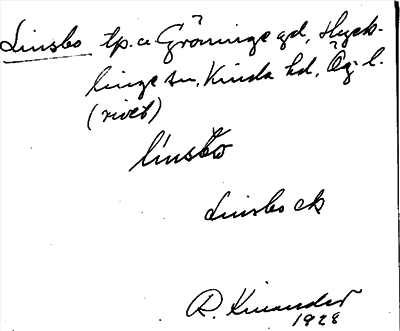 Linsbo tp. a Gröninge gd, Hyck-
linge sn, Kinda hd, Ög. l.
(rivet)
línsbo
Linsbo ek
R. Kinander
1928